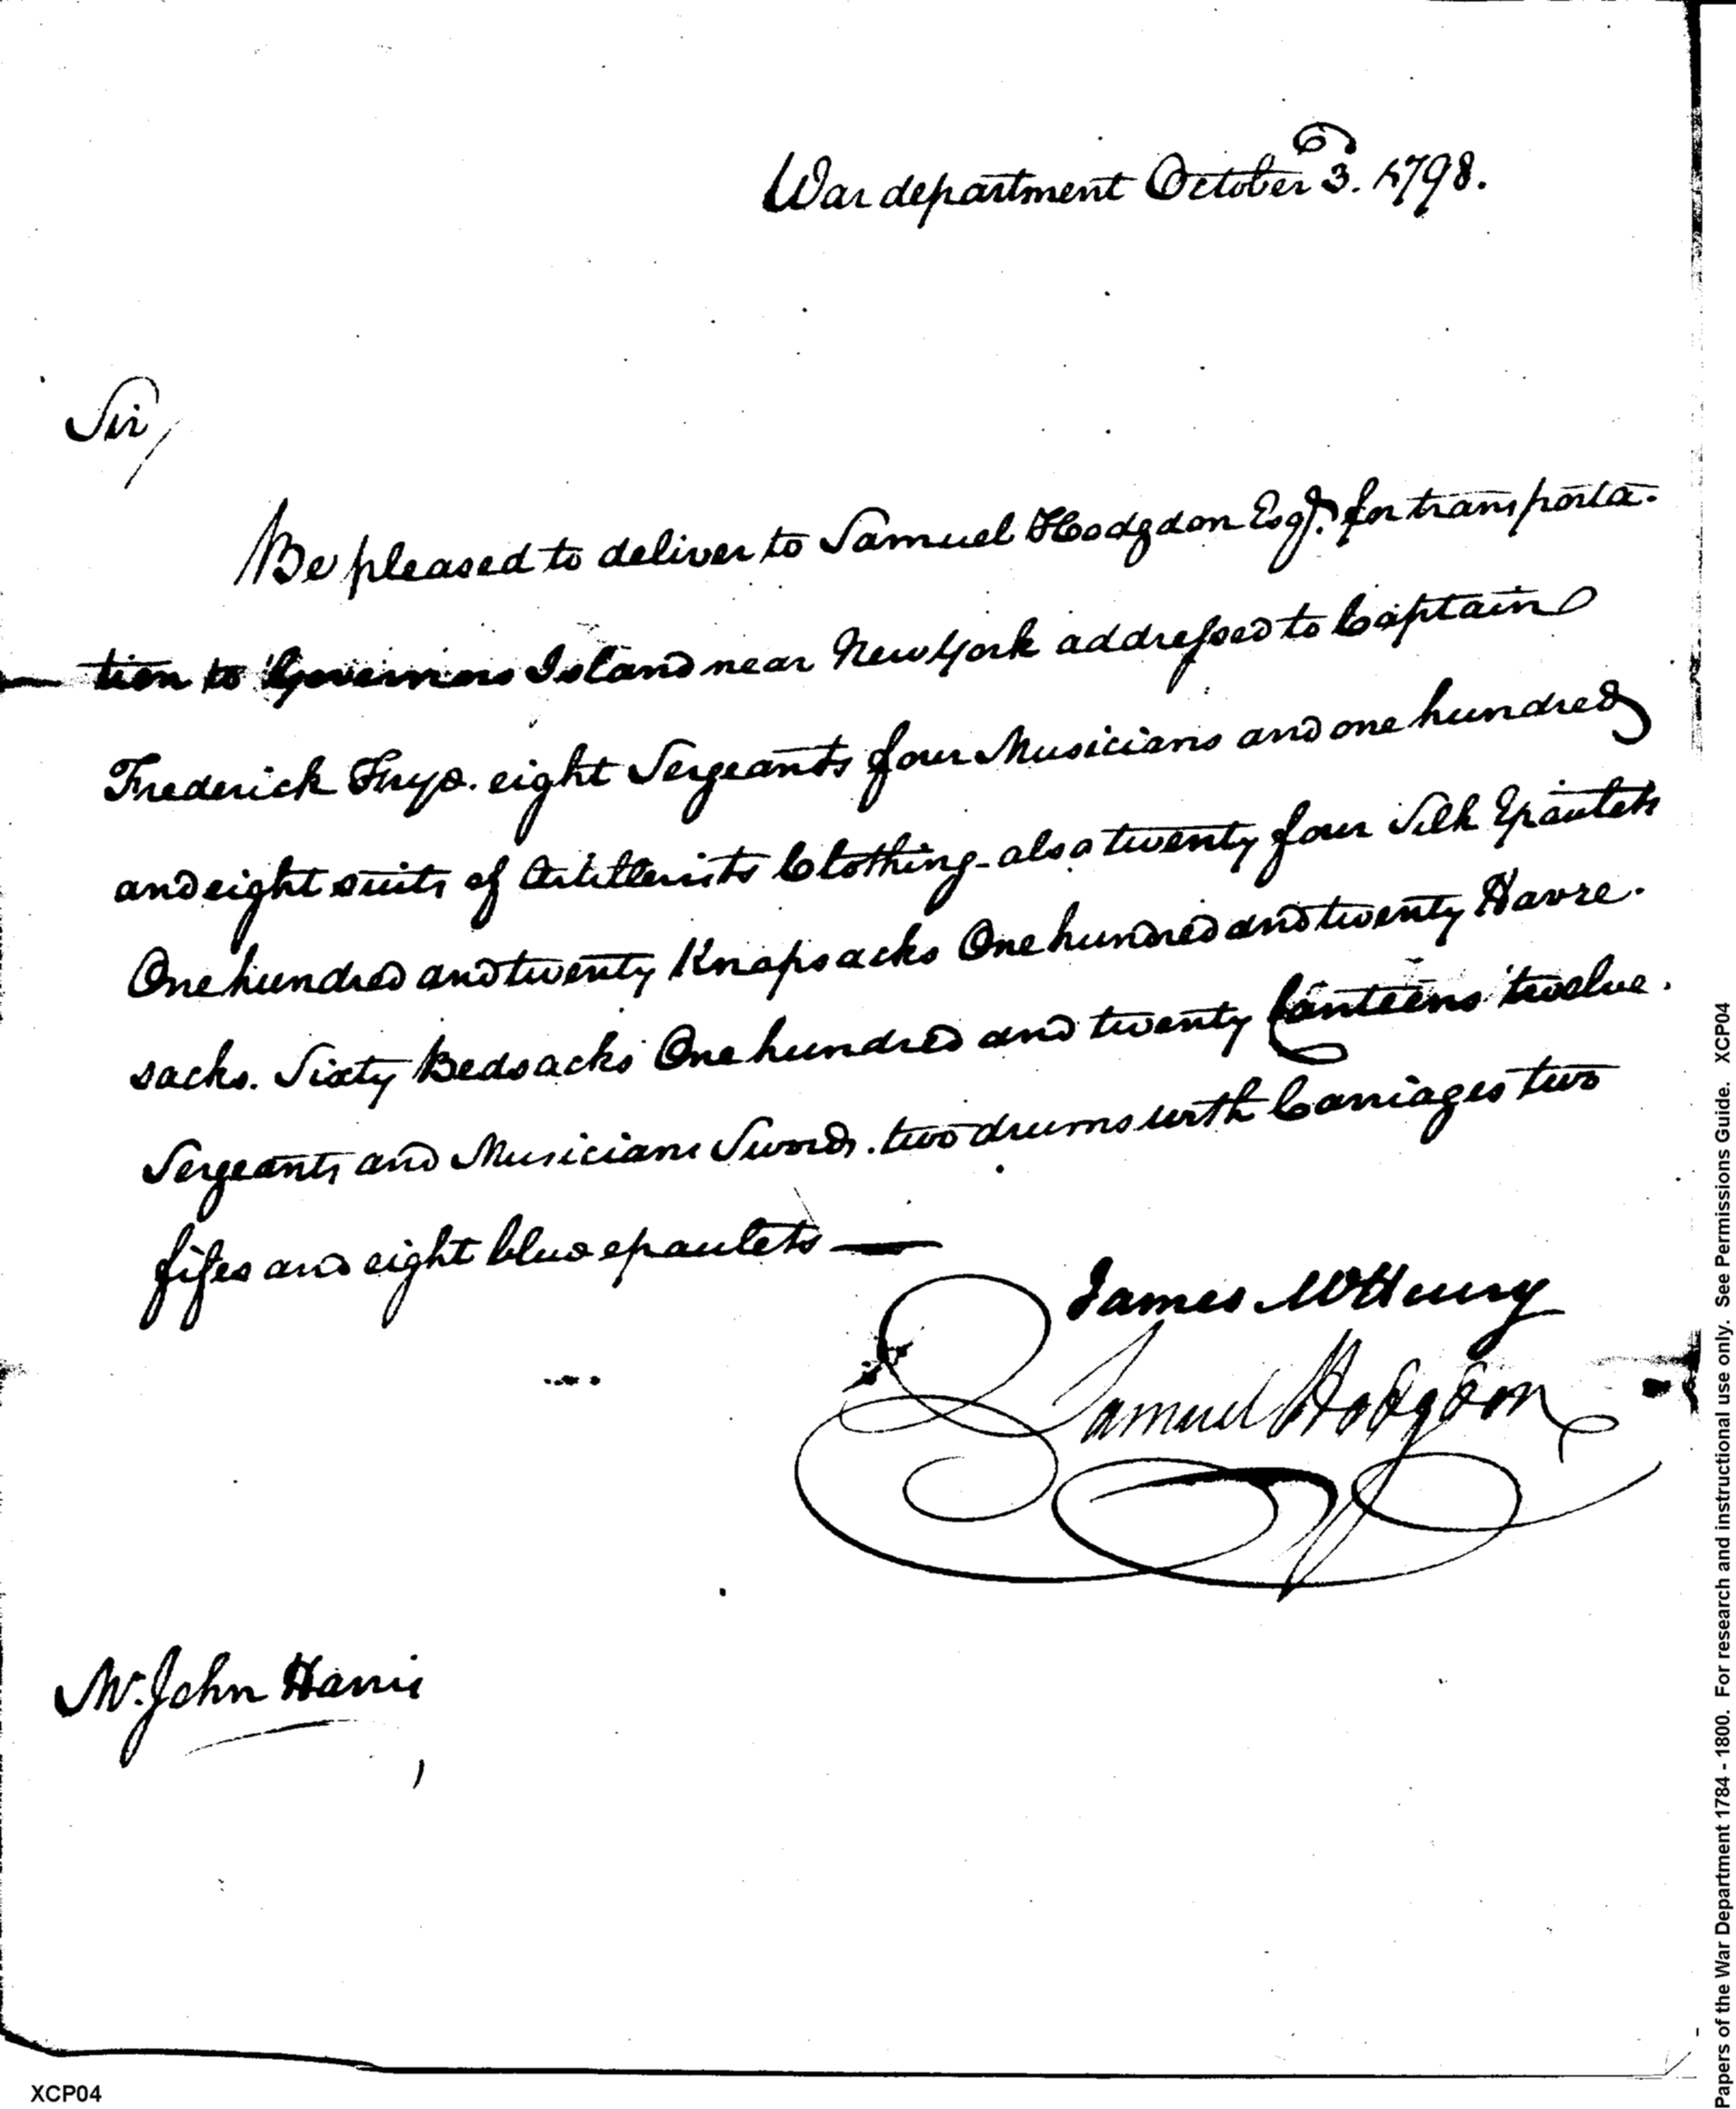 War department October 3. 1798.
Sir,
Be pleased to deliver to Samuel Hodgdon Esqr. for transporta-
tion to Governors Island near New York addressed to Captain
Frederick Frye. eight Sergeants four Musicians and one hundred
and eight suits of Artillerists Clothing - also twenty four Silk Epaulets
One hundred and twenty Knapsacks One hundred and twenty Havre-
sacks. Sixty Bedsacks One hundred and twenty Canteens twelve.
Sergeants and Musicians Swords. two drums with Carriages two
fifes and eight blue epaulets —
James McHenry
Samuel Hodgdon
Mr. John Harris
XCP04
Papers of the War Department 1784 - 1800. For research and instructional use only. See Permissions Guide. XCP04